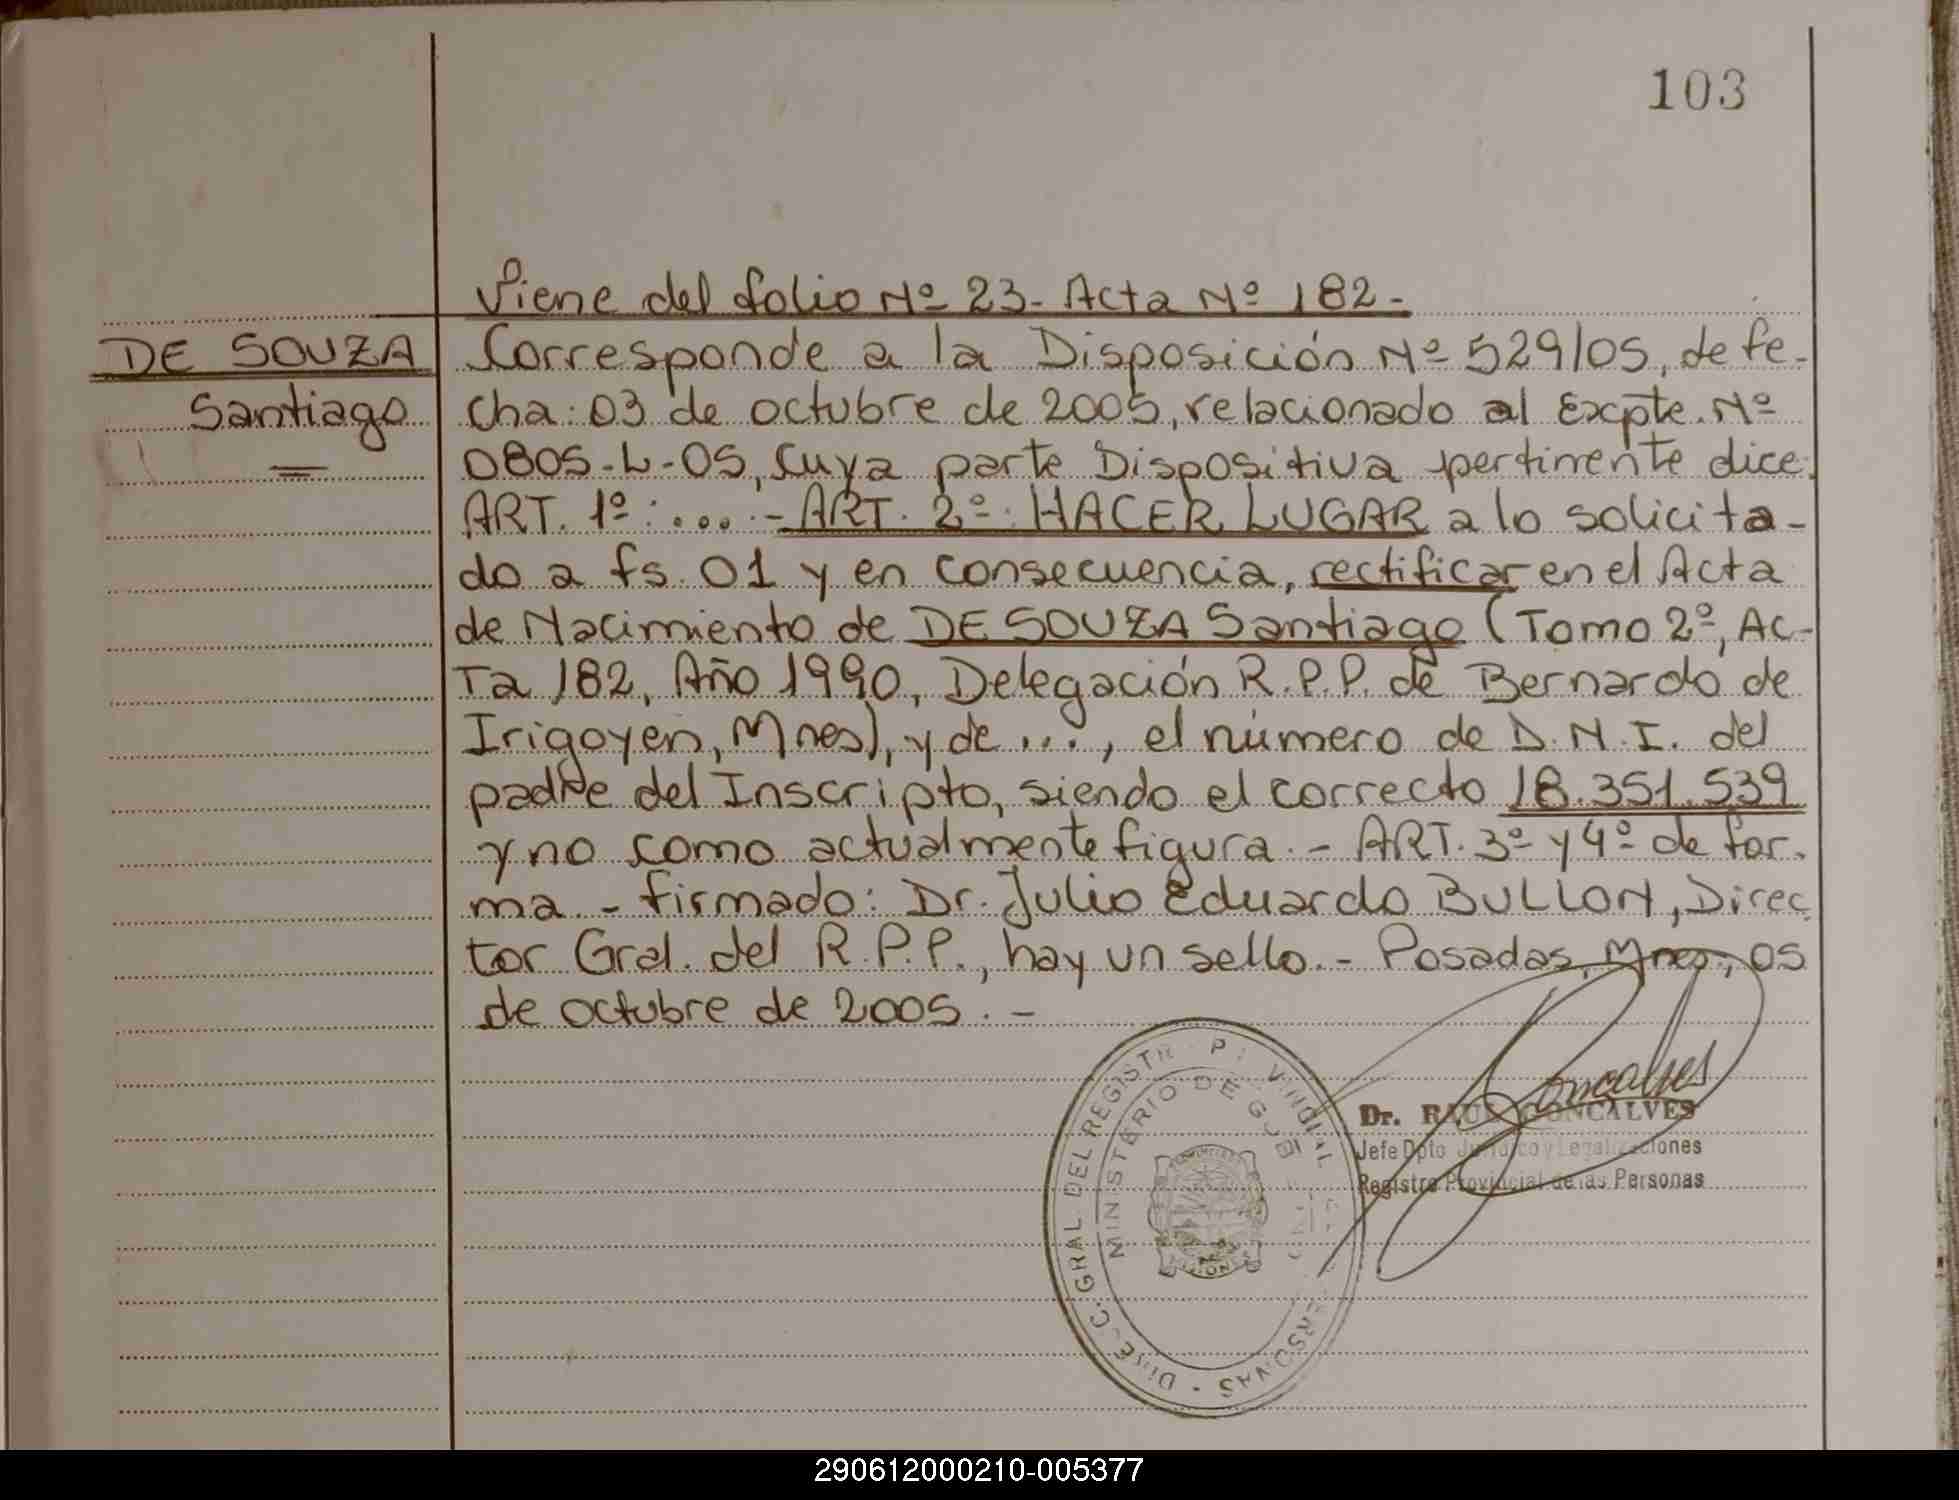 103
Viene del folio Nº 23- Acta Nº 182-
DE SOUZA
Santiago
Corresponde a la Disposición Nº 529/05, de fe-
cha: 03 de octubre de 2005, relacionado al Excpte. Nº
0805-L-05, cuya parte Dispositiva pertinente dice:
ART. 1º: ....- ART. 2º: HACER LUGAR a lo solicita-
do a fs. 01 y en consecuencia, rectificar en el Acta
de Nacimiento de DE SOUZA Santiago (Tomo 2º, Ac-
ta 182, Año 1990, Delegación R.P.P. de Bernardo de
Irigoyen, Mnes), y de ..., el número de D.N.I. del
padre del Inscripto, siendo el correcto 18.351.539
y no como actualmente figura.- ART. 3º y 4º de for-
ma.- firmado: Dr. Julio Eduardo BULLON, Direc-
tor Gral. del R.P.P., hay un sello.- Posadas, Mnes, 05
de octubre de 2005.-
Dr. RAUL GONCALVES
Jefe Dpto Jurídico y Legalizaciones
Registro Provincial de las Personas
GRAL. DEL REGISTR PROVINCIAL
PERSONAS
MINISTERIO DE GOB
290612000210-005377